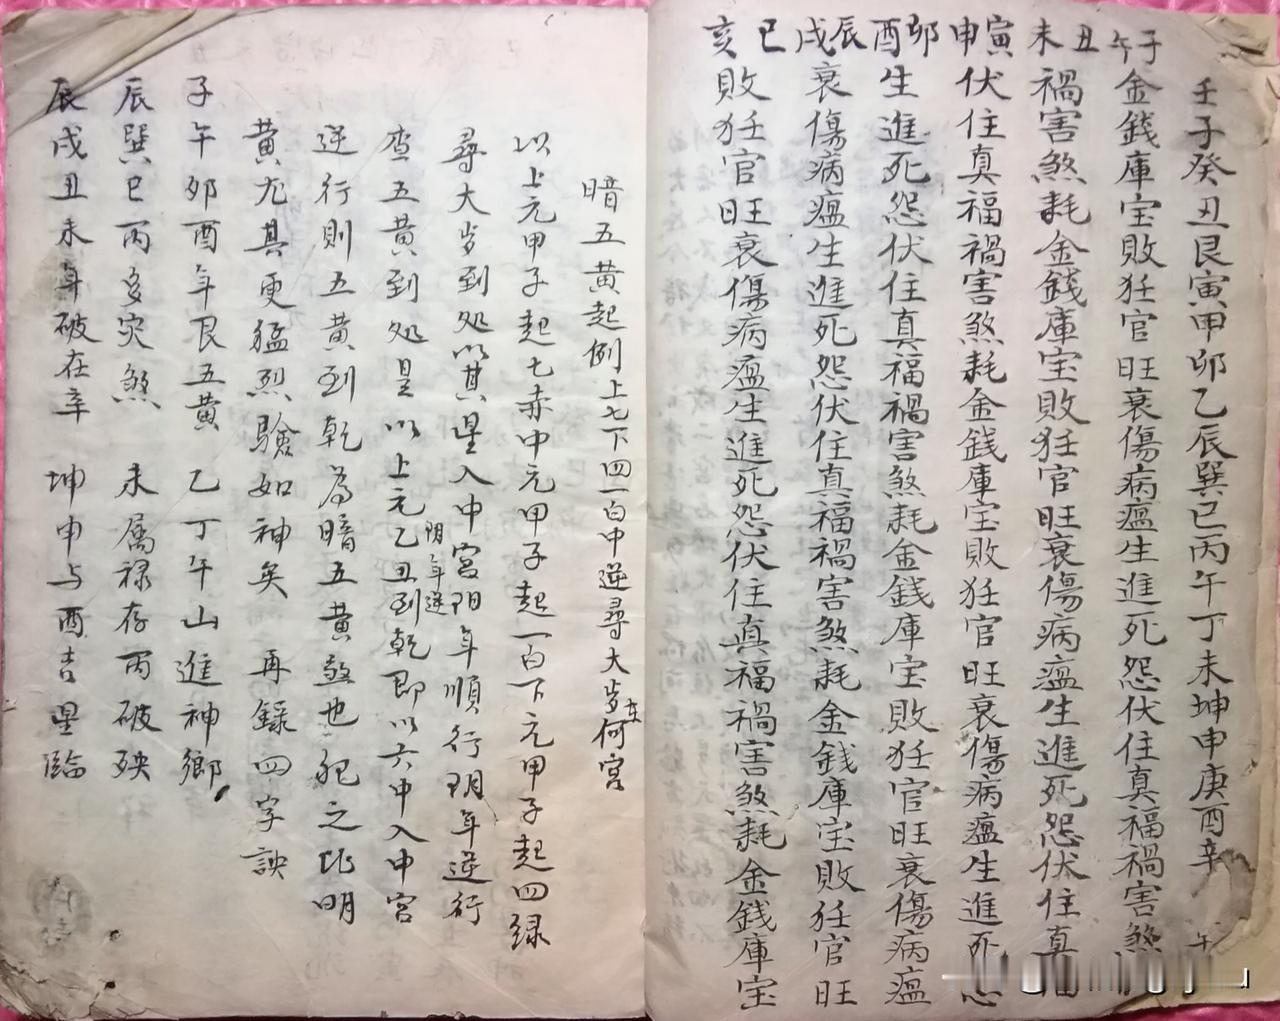 壬子癸丑艮寅甲卯乙辰巽巳丙午丁未坤申庚酉辛
子午 金錢庫宝敗狂官旺衰傷病瘟生進死怨伏住真福禍害煞
丑未 禍害煞耗金錢庫宝敗狂官旺衰傷病瘟生進死怨伏住真福
寅申 伏住真福禍害煞耗金錢庫宝敗狂官旺衰傷病瘟生進死怨
卯酉 生進死怨伏住真福禍害煞耗金錢庫宝敗狂官旺衰傷病瘟
辰戌 衰傷病瘟生進死怨伏住真福禍害煞耗金錢庫宝敗狂官旺
巳亥 敗狂官旺衰傷病瘟生進死怨伏住真福禍害煞耗金錢庫宝
暗五黄起例上七下四一白中逆尋大岁在何宫
以上元甲子起七赤中元甲子起一白下元甲子起四緑
尋大岁到处以其星入中宫阳年順行阴年逆行
查五黄到处是以上元乙丑到乾即以六中入中宫
阴年逆
逆行則五黄到乾為暗五黄煞也犯之比明
黄尤其更猛烈驗如神矣 再録四字訣
子午卯酉年艮五黄 乙丁午山進神鄉
辰巽巳丙多灾煞 未属禄存丙破殃
辰戌丑未年破在辛 坤申与酉吉星臨